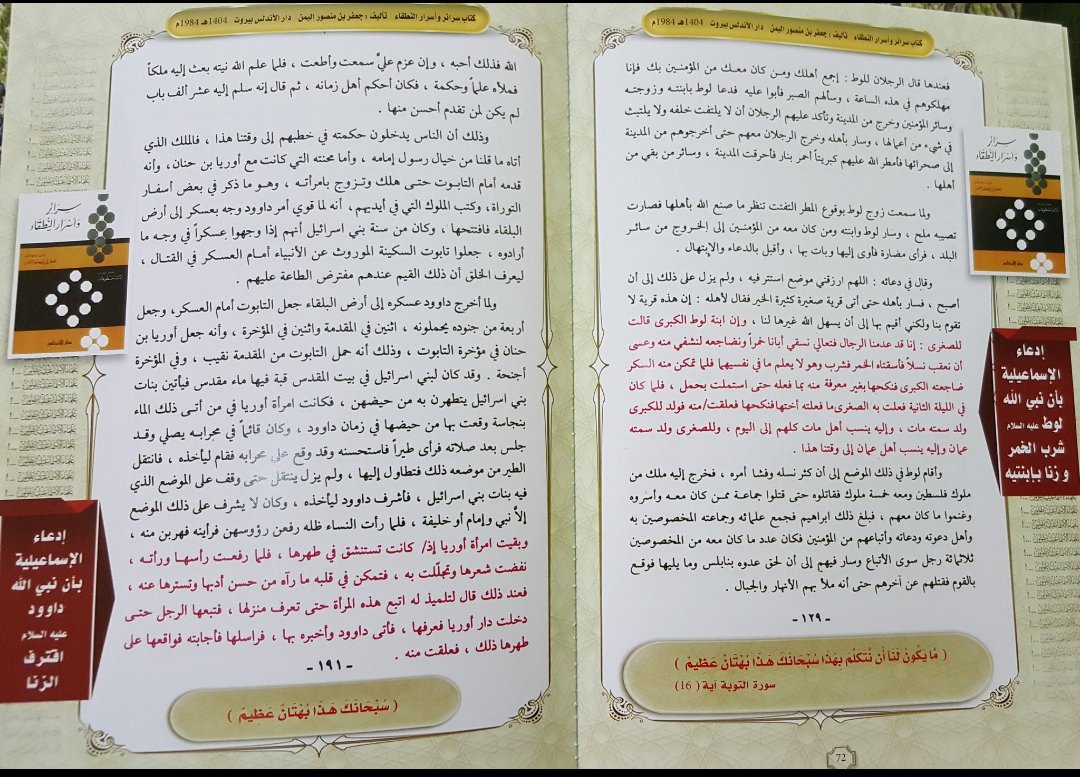 كتاب سرائر وأسرار النطقاء تأليف : جعفر بن منصور اليمن دار الأندلس بيروت 1404هـ 1984م
فعندها قال الرجلان للوط : إجمع أهلك ومن كان معك من المؤمنين بك فإنا
مهلكوهم في هذه الساعة ، وسألهم الصبر فأبوا عليه فدعا لوط بابنته وزوجته
وسائر المؤمنين وخرج من المدينة وتأكد عليهم الرجلان أن لا يلتفت خلفه ولا يلتبث
في شيء من أعمالها ، وسار بأهله وخرج الرجلان معهم حتى أخرجوهم من المدينة
إلى صحرائها فأمطر الله عليهم كبريتاً أحمر بنار فأحرقت المدينة ، وسائر من بقي من
أهلها .
ولما سمعت زوج لوط بوقوع المطر التفتت تنظر ما صنع الله بأهلها فصارت
نصيبه ملح ، وسار لوط وابنته ومن كان معه من المؤمنين إلى الخروج من سائر
البلد ، فرأى مضارة فأوى إليها وبات بها ، وأقبل بالدعاء والإبتهال .
وقال في دعائه : اللهم ارزقني موضع استتر فيه ، ولم يزل على ذلك إلى أن
أصبح ، فسار بأهله حتى أتى قرية صغيرة كثيرة الخير فقال لأهله : إن هذه قرية لا
تقوم بنا ولكني أقيم بها إلى أن يسهل الله غيرها لنا ، وإن ابنة لوط الكبرى قالت
للصغرى : إنا قد عدمنا الرجال فتعالي نسقي أبانا خمراً ونضاجعه لنشفي منه وعسى
أن نعقب نسلاً فأسقتاه الخمر فشرب وهو لا يعلم ما في نفسيهما فلما تمكن منه السكر
ضاجعته الكبرى فنكحها بغير معرفة منه بما فعله حتى استملت بحمل ، فلما كان
في الليلة الثانية فعلت به الصغرى ما فعلته أختها فنكحها فعلقت/منه فولد للكبرى
ولد سمته مات ، وإليه ينسب أهل مات كلهم إلى اليوم ، وللصغرى ولد سمته
عمان وإليه ينسب أهل عمان إلى وقتنا هذا .
وأقام لوط في ذلك الموضع إلى أن كثر نسله وفشا أمره ، فخرج إليه ملك من
ملوك فلسطين ومعه خمسة ملوك فقاتلوه حتى قتلوا جماعة ممن كان معه وأسروه
وغنموا ما كان معهم ، فبلغ ذلك ابراهيم فجمع علمائه وجماعته المخصوصين به
وأهل دعوته ودعاته وأتباعهم من المؤمنين فكان عدد ما كان معه من المخصوصين
ثلاثمائة رجل سوى الأتباع وسار فيهم إلى أن لحق عدوه بنابلس وما يليها فوقع
بالقوم فقتلهم عن آخرهم حتى أنه ملأ بهم الأنهار والجبال .
- ١٢٩ -
( مَّا يَكُونُ لَنَا أَن نَّتَكَلَّمَ بِهَذَا سُبْحَانَكَ هَذَا بُهْتَانٌ عَظِيمٌ )
سورة التوبة آية ( 16 )
72
سرائر
وأسرار النطقاء
إدعاء
الإسماعيلية
بأن نبي الله
لوط عليه السلام
شرب الخمر
و زنا بإبنتيه
كتاب سرائر وأسرار النطقاء تأليف : جعفر بن منصور اليمن دار الأندلس بيروت 1404هـ 1984م
الله فذلك أحبه ، وإن عزم عليَّ سمعت وأطعت ، فلما علم الله نيته بعث إليه ملكاً
فملأه علماً وحكمة ، فكان أحكم أهل زمانه ، ثم قال إنه سلم إليه عشر ألف باب
لم يكن لمن تقدم أحسن منها .
وذلك أن الناس يدخلون حكمته في خطبهم إلى وقتنا هذا ، فالملك الذي
أتاه ما قلنا من خيال رسول إمامه ، وأما محنته التي كانت مع أوريا بن حنان ، وأنه
قدمه أمام التابوت حتى هلك وتزوج بامرأته ، وهو ما ذكر في بعض أسفار
التوراة ، وكتب الملوك التي في أيديهم ، أنه لما قوي أمر داوود وجه بعسكر إلى أرض
البلقاء فافتتحها ، وكان من سنة بني اسرائيل أنهم إذا وجهوا عسكراً في وجه ما
أرادوه ، جعلوا تابوت السكينة الموروث عن الأنبياء أمام العسكر في القتال ،
ليعرف الخلق أن ذلك القيم عندهم مفترض الطاعة عليهم .
ولما أخرج داوود عسكره إلى أرض البلقاء جعل التابوت أمام العسكر، وجعل
أربعة من جنوده يحملونه ، اثنين في المقدمة واثنين في المؤخرة ، وأنه جعل أوريا بن
حنان في مؤخرة التابوت ، وذلك أنه حمل التابوت من المقدمة نقيب ، وفي المؤخرة
أجنحة . وقد كان لبني اسرائيل في بيت المقدس قبة فيها ماء مقدس فيأتين بنات
بني اسرائيل يتطهرن به من حيضهن . فكانت امرأة أوريا في من أتى ذلك الماء
بنجاسة وقعت بها من حيضها في زمان داوود ، وكان قائماً في محرابه يصلي وقد
جلس بعد صلاته فرأى طيراً فاستحسنه وقد وقع على محرابه فقام ليأخذه ، فانتقل
الطير من موضعه ذلك فتطاول إليها ، ولم يزل ينتقل حتى وقف على الموضع الذي
فيه بنات بني اسرائيل ، فأشرف داوود ليأخذه ، وكان لا يشرف على ذلك الموضع
إلاّ نبي وإمام أو خليفة ، فلما رأت النساء ظله رفعن رؤوسهن فرأينه فهربن منه ،
وبقيت امرأة أوريا إذ/ كانت تستنشق في طهرها ، فلما رفعت رأسها ورأته ،
نفضت شعرها وتجلّلت به ، فتمكن في قلبه ما رآه من حسن أدبها وتسترها عنه ،
فعند ذلك قال لتلميذ له اتبع هذه المرأة حتى تعرف منزلها ، فتبعها الرجل حتى
دخلت دار أوريا فعرفها ، فأتى داوود وأخبره بها ، فراسلها فأجابته فواقعها على
طهرها ذلك ، فعلقت منه .
- ١٩١ -
( سُبْحَانَكَ هَذَا بُهْتَانٌ عَظِيمٌ )
سرائر
وأسرار النطقاء
إدعاء
الإسماعيلية
بأن نبي الله
داوود
عليه السلام
اقترف
الزنا